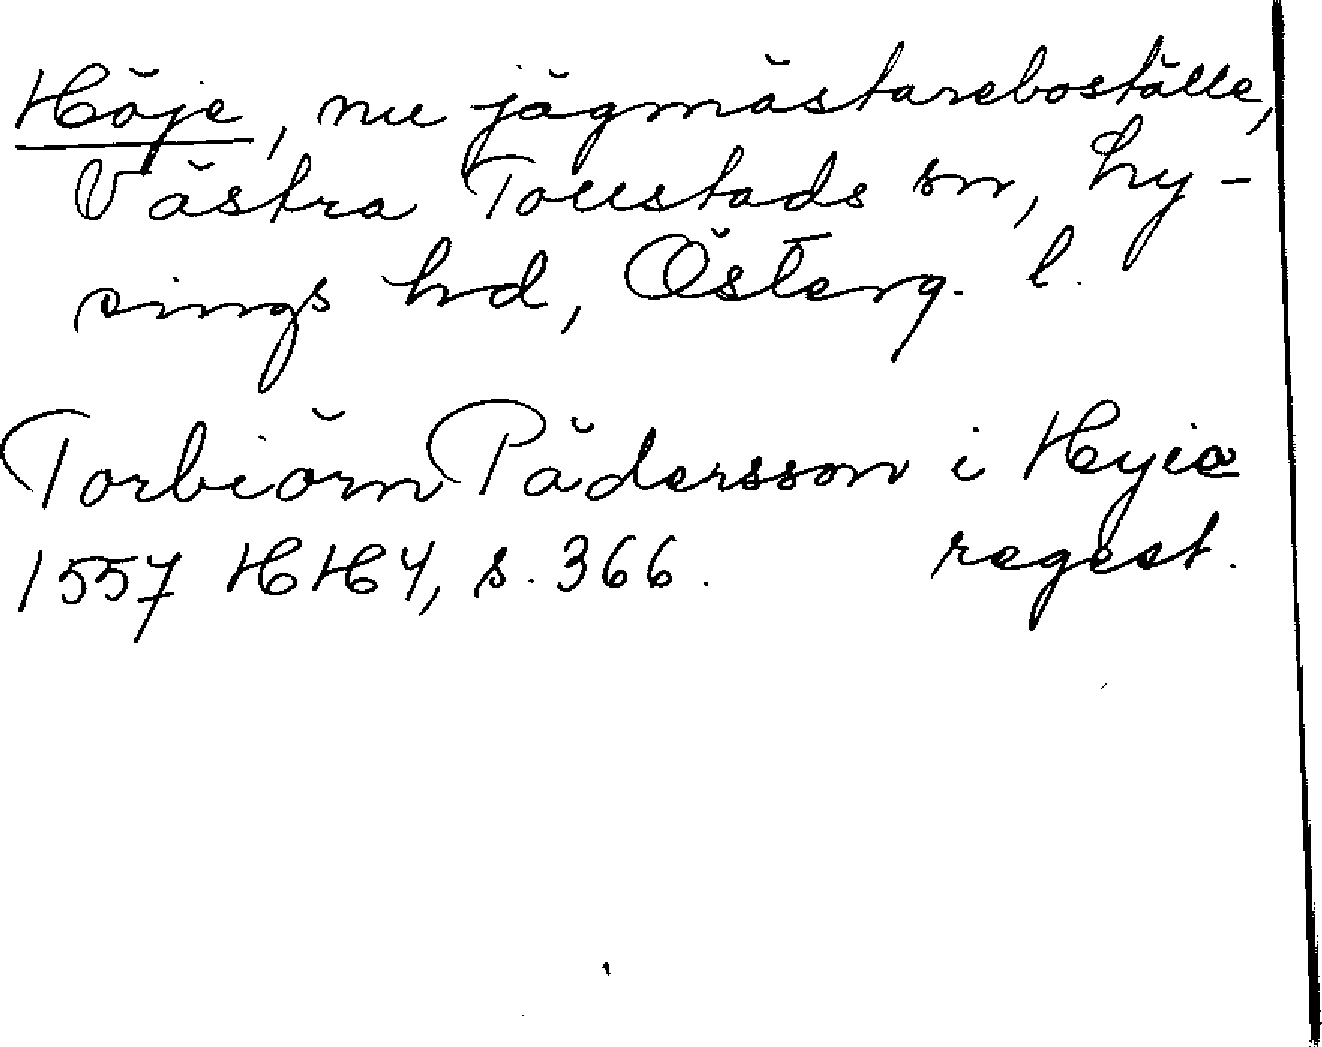 Höje, nu jägmästareboställe,
Västra Tollstads sn, Ly-
sings hd, Österg. l.
Torbiörn Pädersson i Hyiæ
1557 HH4, s. 366. regest.